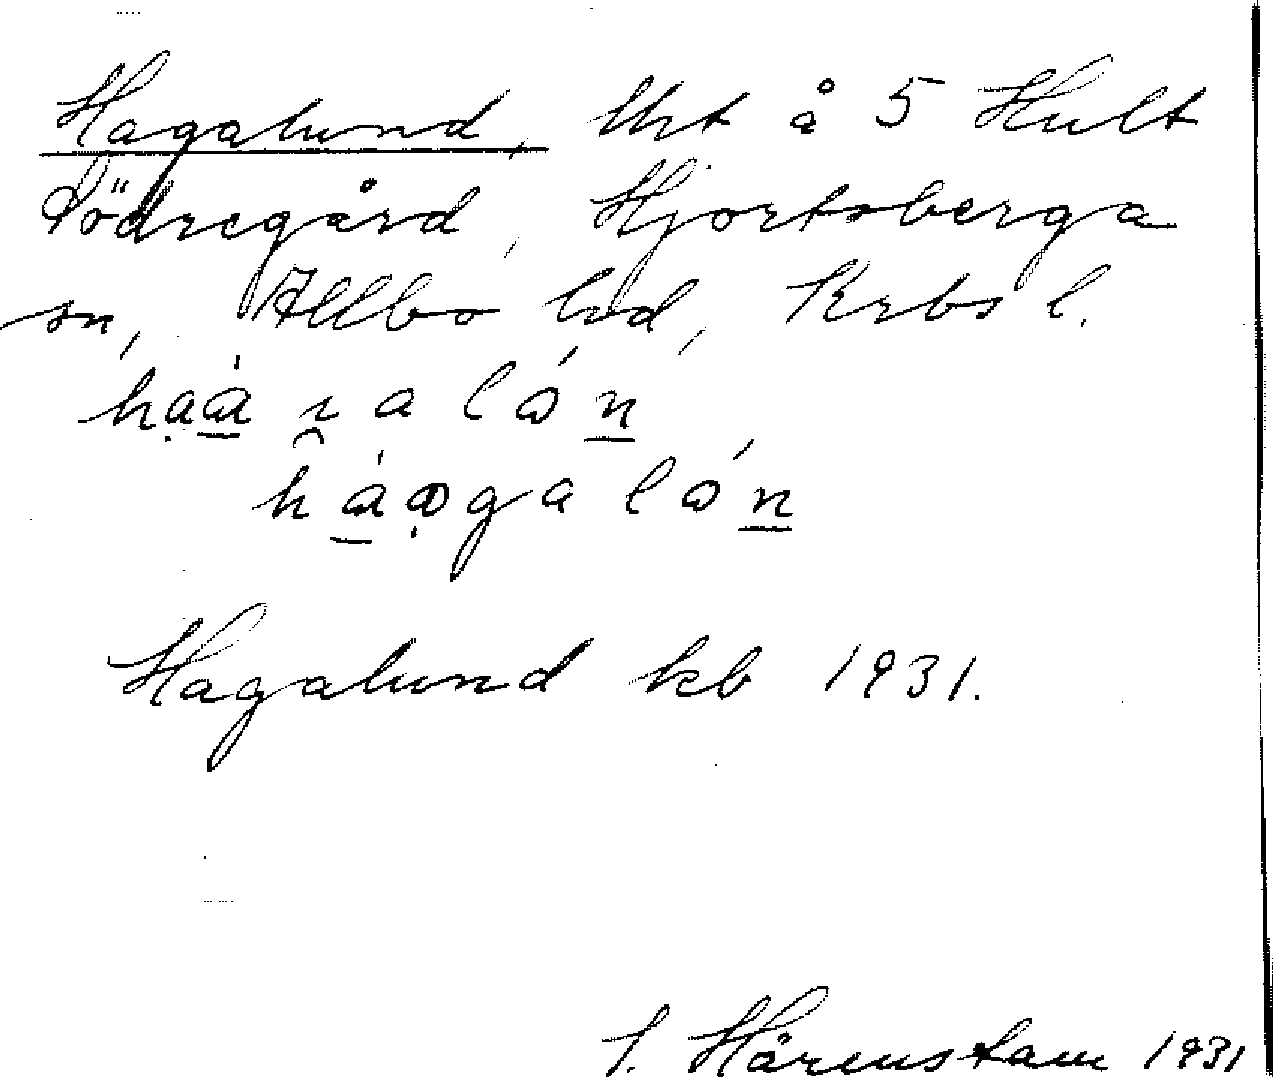 Hagalund, lht å 5 Hult
Södregård, Hjortsberga
sn, Allbo hd, Krbs l.
Hagalund kb 1931.
Hårenstam 1931